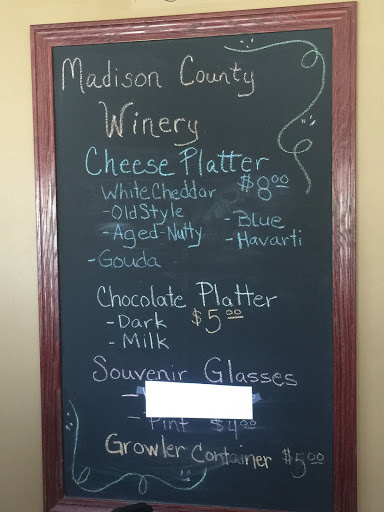 Madison County
Winery
Cheese Platter
White Cheddar $8.00
-Old Style -Blue
-Aged-Nutty -Havarti
-Gouda
Chocolate Platter
-Dark $5.00
-Milk
Souvenir Glasses
-
- Pint $4.00
Growler Container $5.00